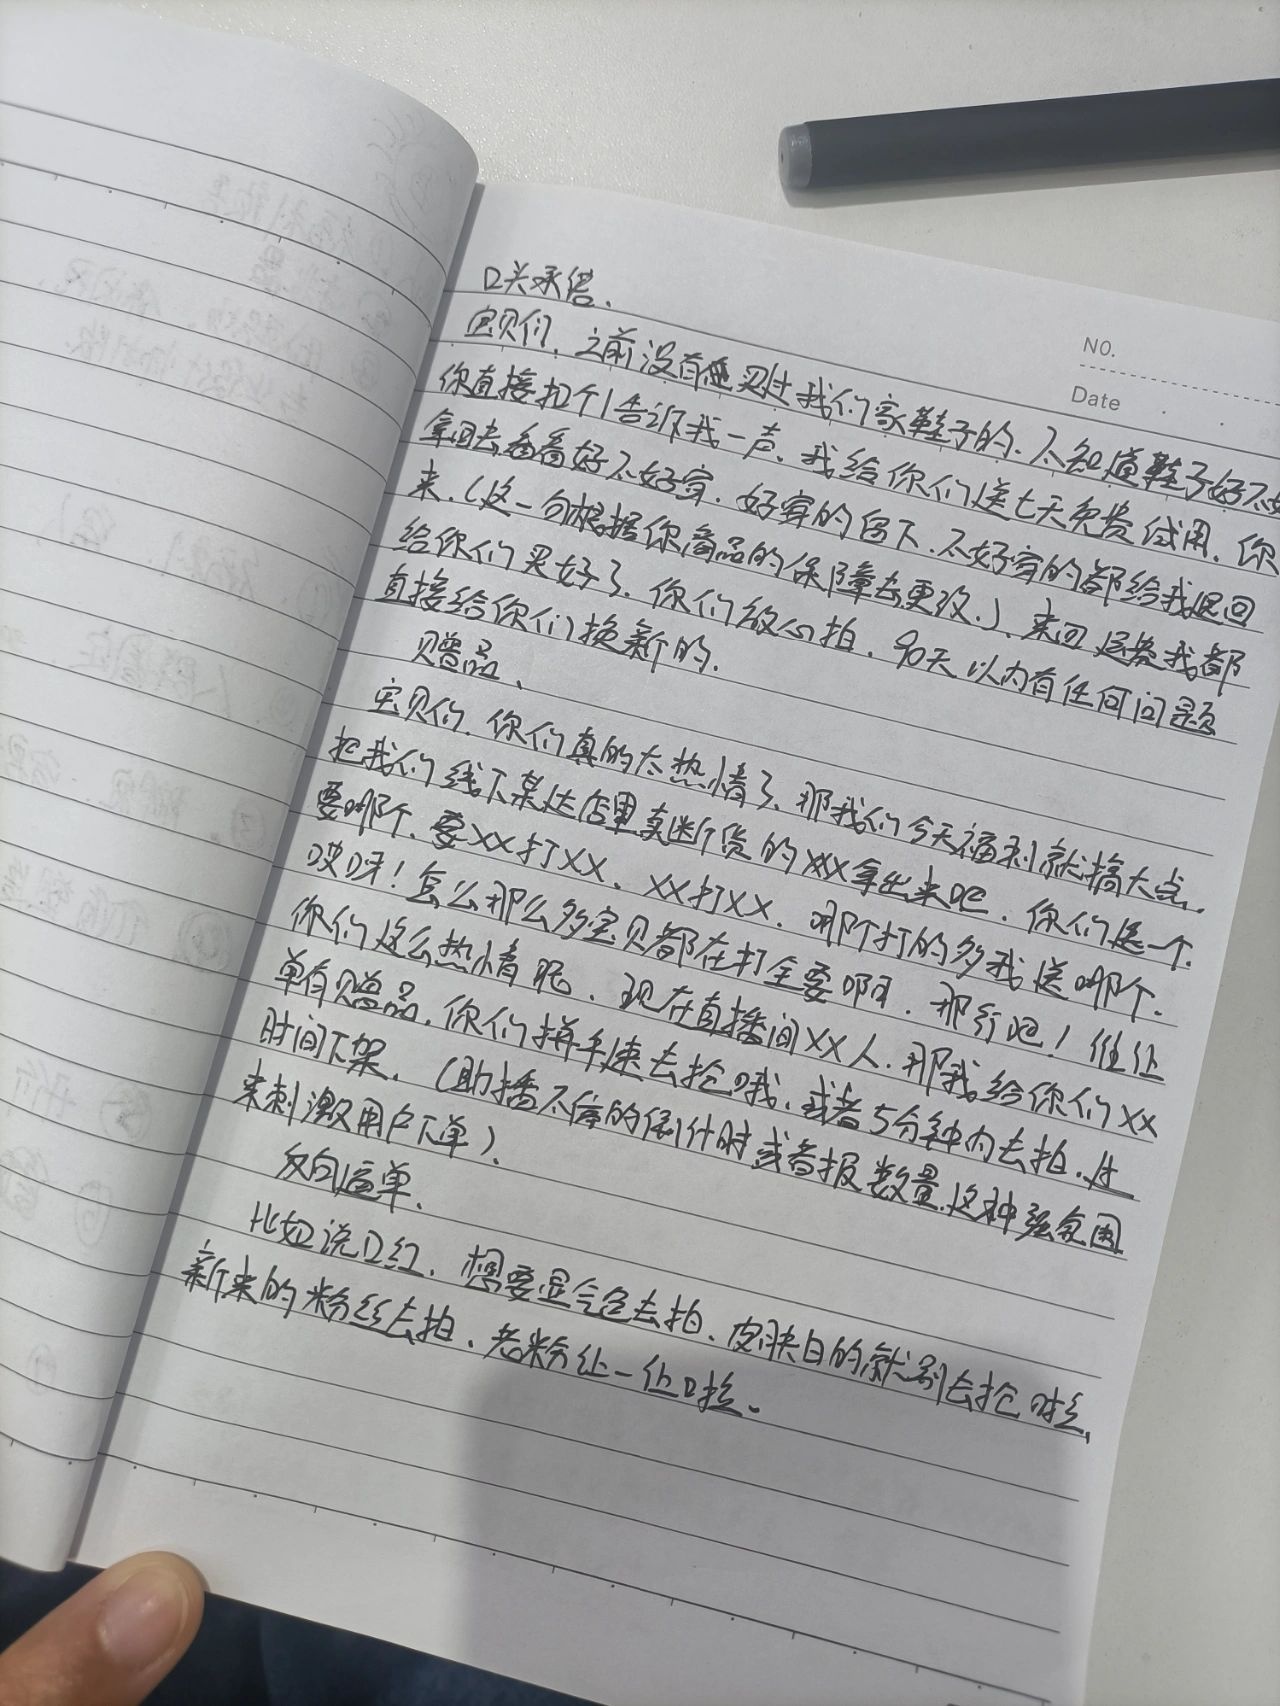 NO.
Date
口头承偌.
宝贝们. 之前没有过买过我们家鞋子的. 不知道鞋子好不好
你直接扣个1告诉我一声. 我给你们送七天免费试用. 你
拿回去看看好不好穿. 好穿的留下. 不好穿的都给我退回
来.(这一句根据你商品的保障去更改.). 来回运费我都
给你们买好了. 你们放心拍. 90天以内有任何问题
直接给你们换新的.
赠品.
宝贝们. 你们真的太热情了. 那我们今天福利就搞大点.
把我们线下某达店里卖断货的XXX拿出来吧. 你们选一个.
要哪个. 要XX打XX. XX打XX. 哪个打的多我送哪个.
哎呀! 怎么那么多宝贝都在打全要啊. 那行吧! 谁让
你们这么热情呢. 现在直播间XX人. 那我给你们XX
单有赠品. 你们拼手速去抢哦. 或者5分钟内去拍. 过
时间下架. (助播不停的倒计时或者报数量.这种强氛围
来刺激用户下单).
反向逼单.
比如说口红. 想要显气色去拍. 皮肤白的就别去抢啦.
新来的粉丝去拍. 老粉让一让啦.